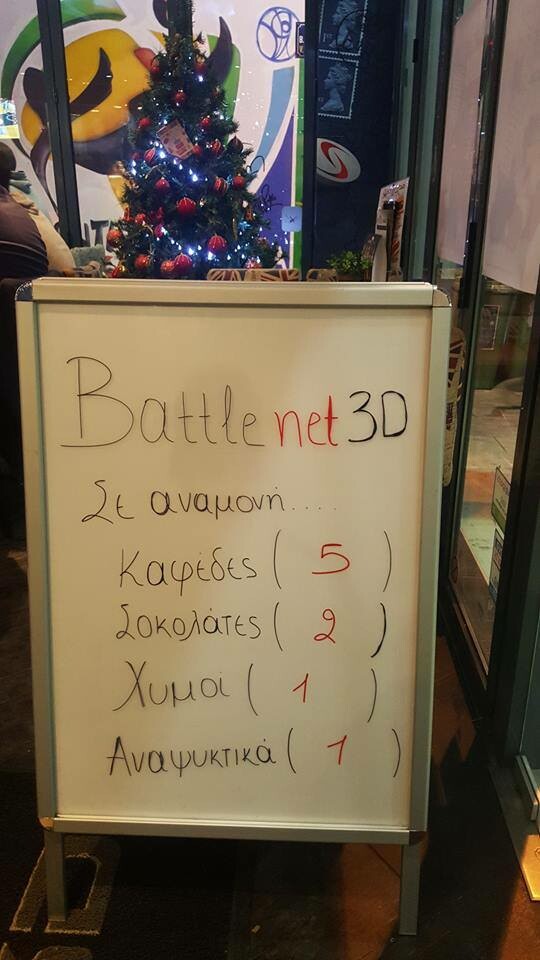 Battle net 3D
Σε αναμονή....
Καφέδες ( 5 )
Σοκολάτες ( 2 )
Χυμοί ( 1 )
Αναψυκτικά ( 1 )